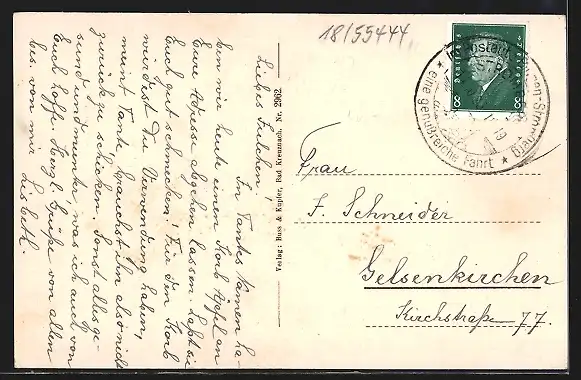 18/55444
Liebes Julchen!
In Tantes Namen ha-
ben wir heute einen Korb Äpfel an
Eure Adresse abgehen lassen. Laßt sie
Euch gut schmecken! Für den Korb
wirst Du Verwendung haben,
meint Tante, brauchst ihn also nicht
zurück zu schicken. Sonst alles ge-
sund und munter, was ich auch von
Euch hoffe. Herzl. Grüße von allem
bes. von mir
Lisbeth.
Verlag: Huss & Kupfer, Bad Kreuznach. Nr. 2962
Deutsches Reich
8 8
eine genußreiche Fahrt
Frau
F. Schneider
Gelsenkirchen
Kirchstraße 77.